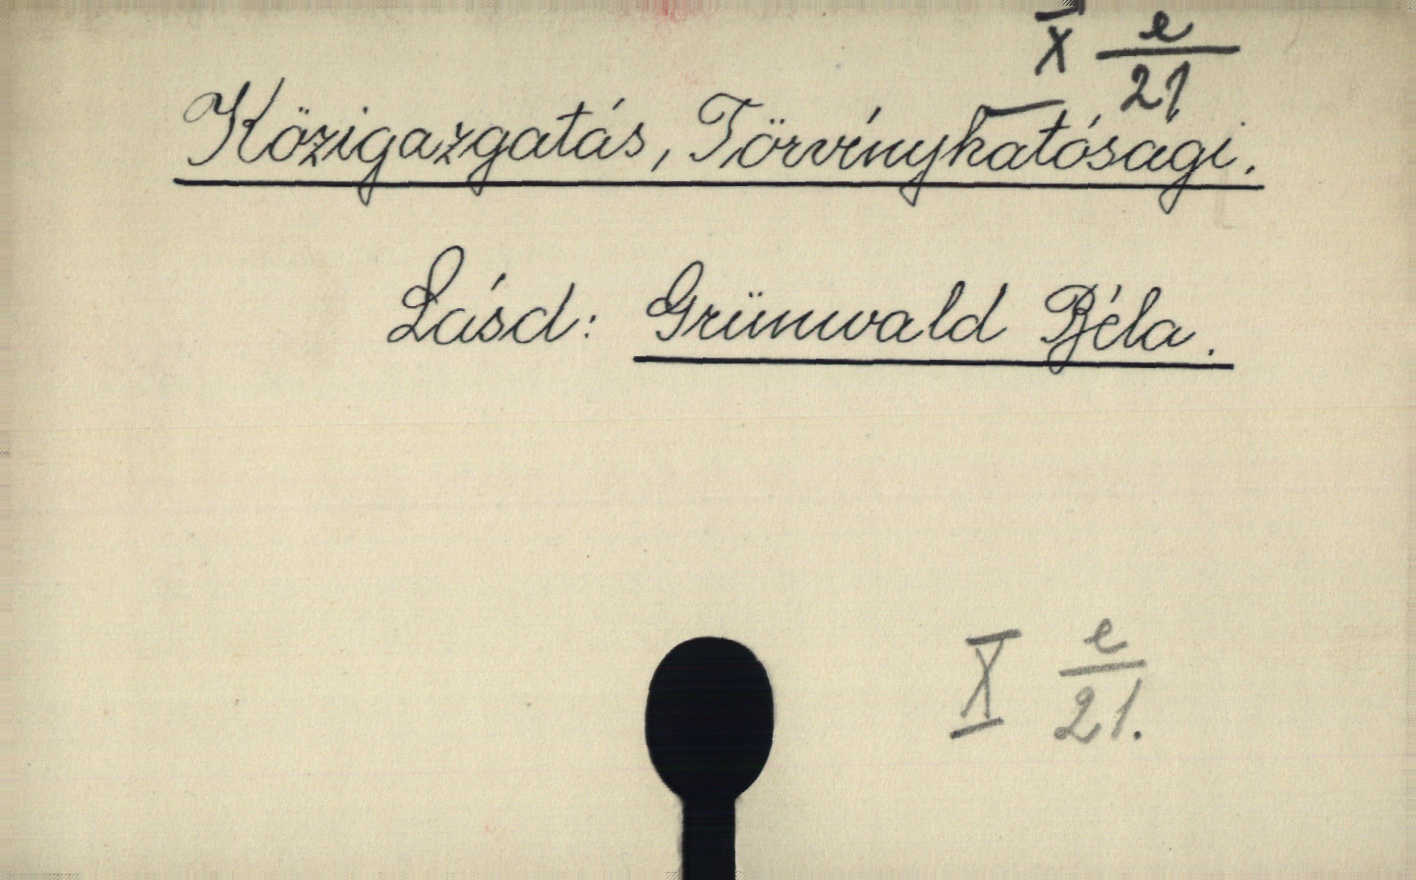 X e/21
Közigazgatás, Törvényhatósági.
Lásd: Grünwald Béla.
X e/21.